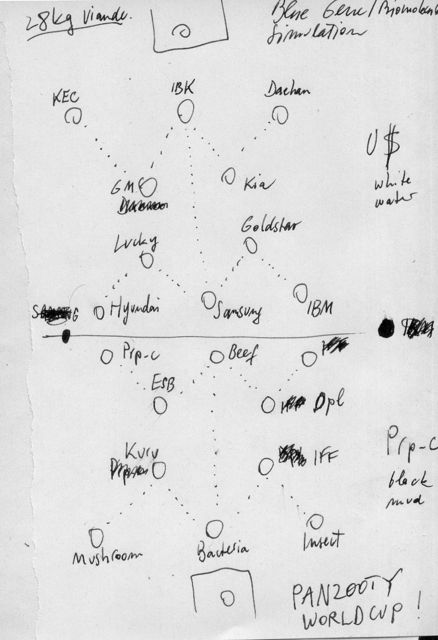 28kg Viande.
Blue Gene/Biomolecul
Simulation
KEC
IBK
Daehan
GMC
Kia
U$
white
water
Lucky
Goldstar
Hyundai
Samsung
IBM
Prp-c
Beef
ESB
Dpl
Kuru
IFF
Prp-c
black
mud
Mushroom
Bacteria
Insect
PANZOOTY
WORLDCUP!